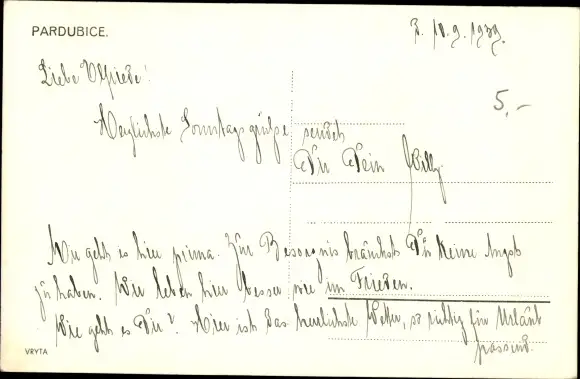 PARDUBICE.
P. 10.9.1939.
Liebe Elfriede!
5,-
Herzlichste Sonntagsgrüße sendet
Dir Dein Willy.
Mir geht es hier prima. Zur Besorgnis brauchst Du keine Angst
zu haben. Wir leben hier besser wie im Frieden.
Wie geht es Dir? Hier ist das herrlichste Wetter, so richtig für Urlaub
passend.
VRYTA